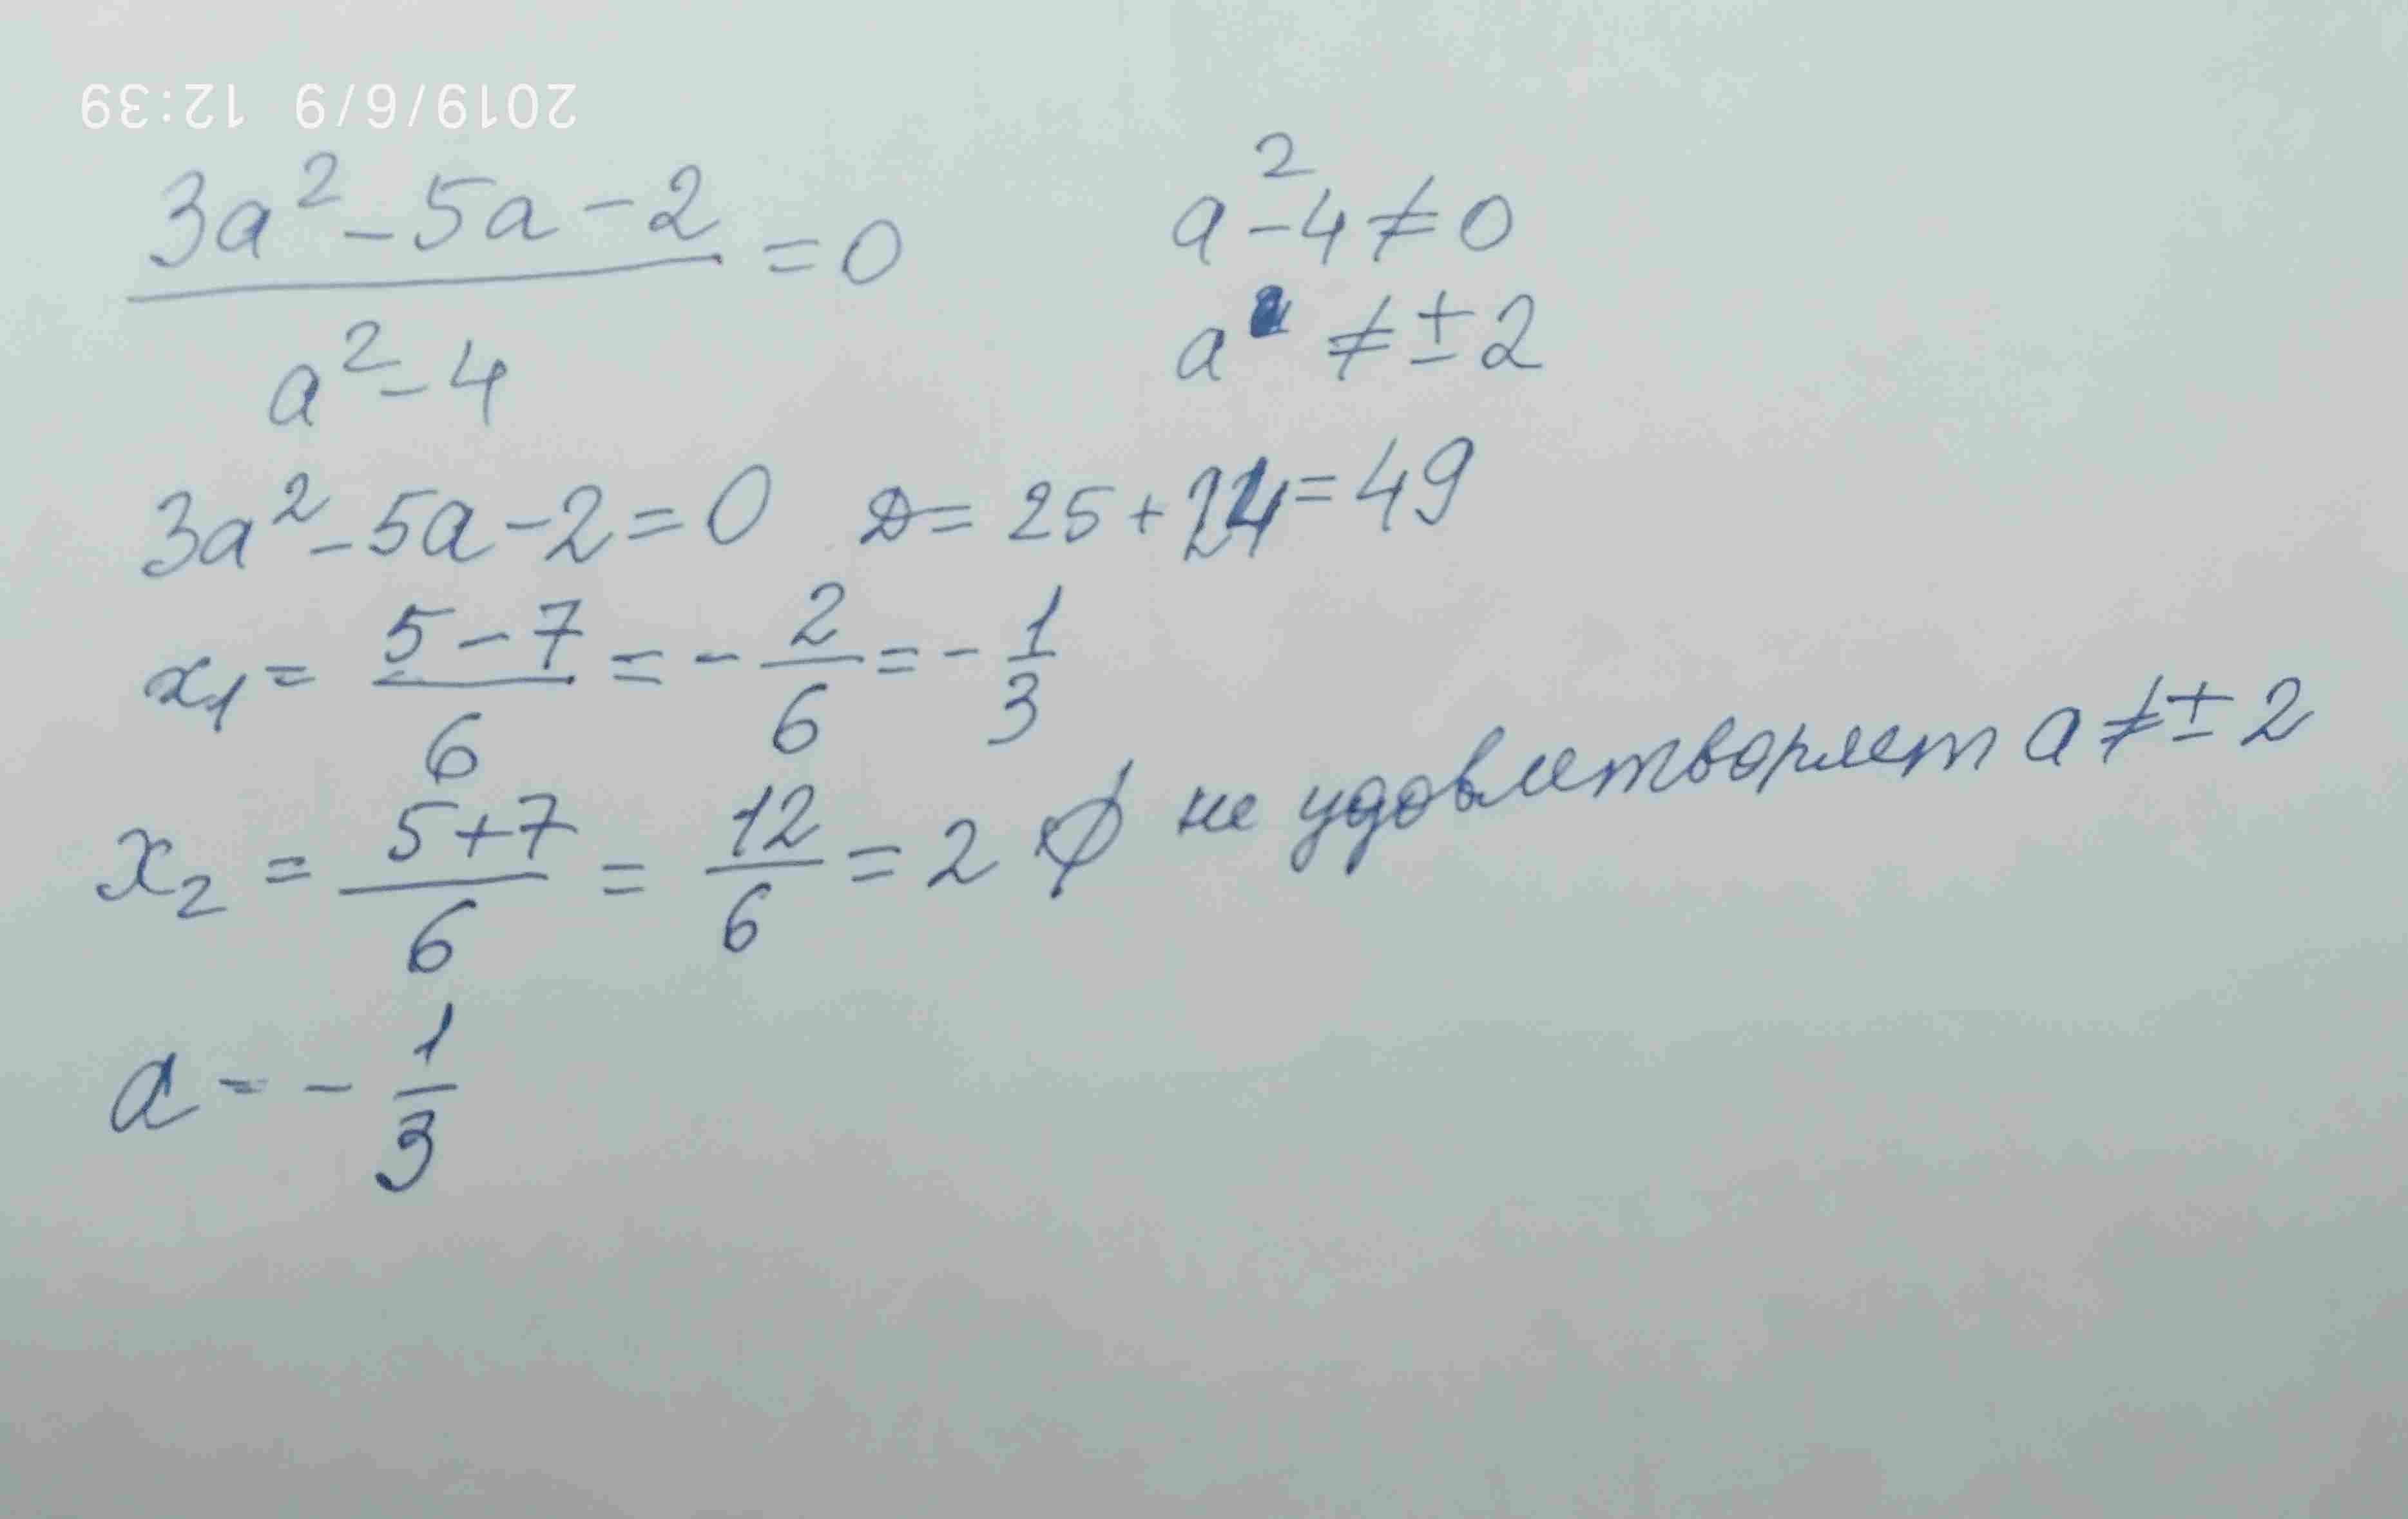 2019/6/9 12:39
3a² - 5a - 2 / a² - 4 = 0
a² - 4 ≠ 0
a ≠ ± 2
3a² - 5a - 2 = 0 D = 25 + 24 = 49
x₁ = 5 - 7 / 6 = - 2 / 6 = - 1 / 3
x₂ = 5 + 7 / 6 = 12 / 6 = 2 ∅ не удовлетворяет a ≠ ± 2
a = - 1 / 3